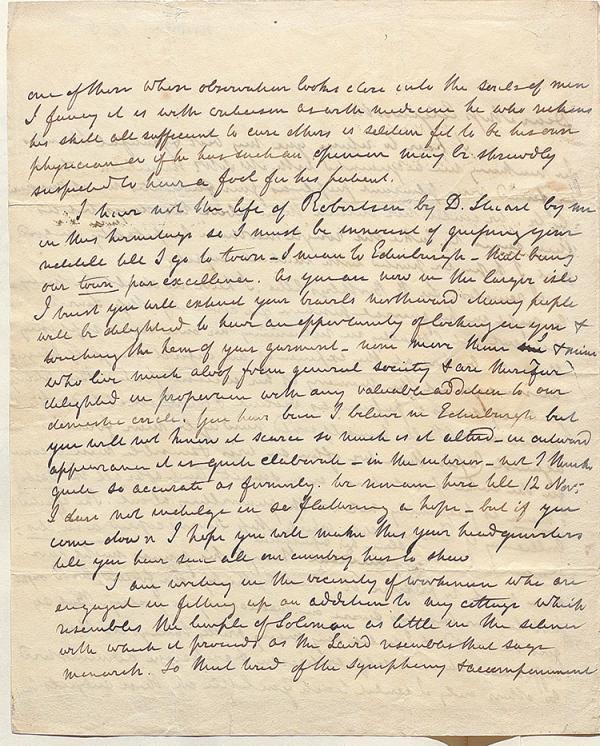 one of them whose observation looks close into the souls of men
I fancy it is with criticism as with medicine he who reckons
his skill all sufficient to cure others is seldom fit to be his own
physician or if he has such an opinion may be shrewdly
suspected to have a fool for his patient.
I have not the life of Robertson by D. Stuart by me
in this hermitage so I must be innocent of your
till I go to town - I mean to Edinburgh - that being
our town par excellence. As you are now in the larger isle
I trust you will extend your travels northward. Many people
will be delighted to have an opportunity of looking on you &
touching the hem of your garment - none more than me & mine
who live much aloof from general society & are therefor
delighted in proportion with any valuable addition to our
domestic circle. You have been I believe in Edinburgh but
you will not know it scarce so much is it altered - in outward
appearance it is quite elaborate - in the interior - not I think
quite so accurate as formerly. We remain here till 12 Nov:
I dare not indulge in so flattering a hope - but if you
come down I hope you will make this your headquarters
till you have seen all our country has to shew
I am writing in the vicinity of workmen who are
engaged in fitting up an addition to my cottage which
resembles the temple of Soloman as little in the silence
with which it proceeds as the Laird resembles that sage
monarch. So that tired of the symphony & accompaniment